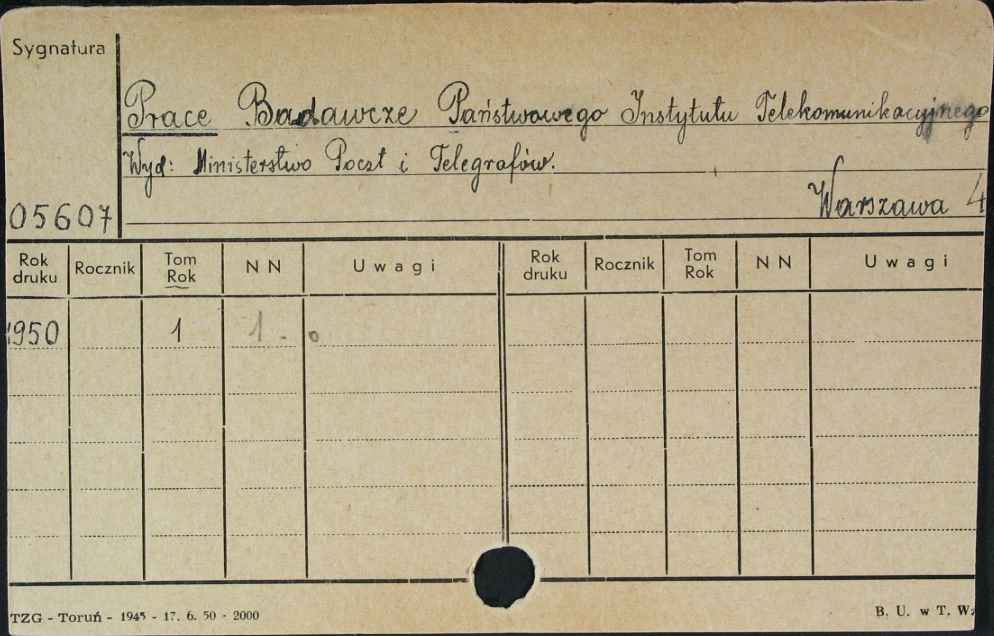 Sygnatura
Prace Badawcze Państwowego Instytutu Telekomunikacyjnego
Wyd: Ministerstwo Poczt i Telegrafów.
05607 Warszawa 4
Rok druku Rocznik Tom Rok NN Uwagi Rok druku Rocznik Tom Rok NN Uwagi
1950 1 1 -
TZG - Toruń - 1945 - 17. 6. 50 - 2000 B. U. w T.